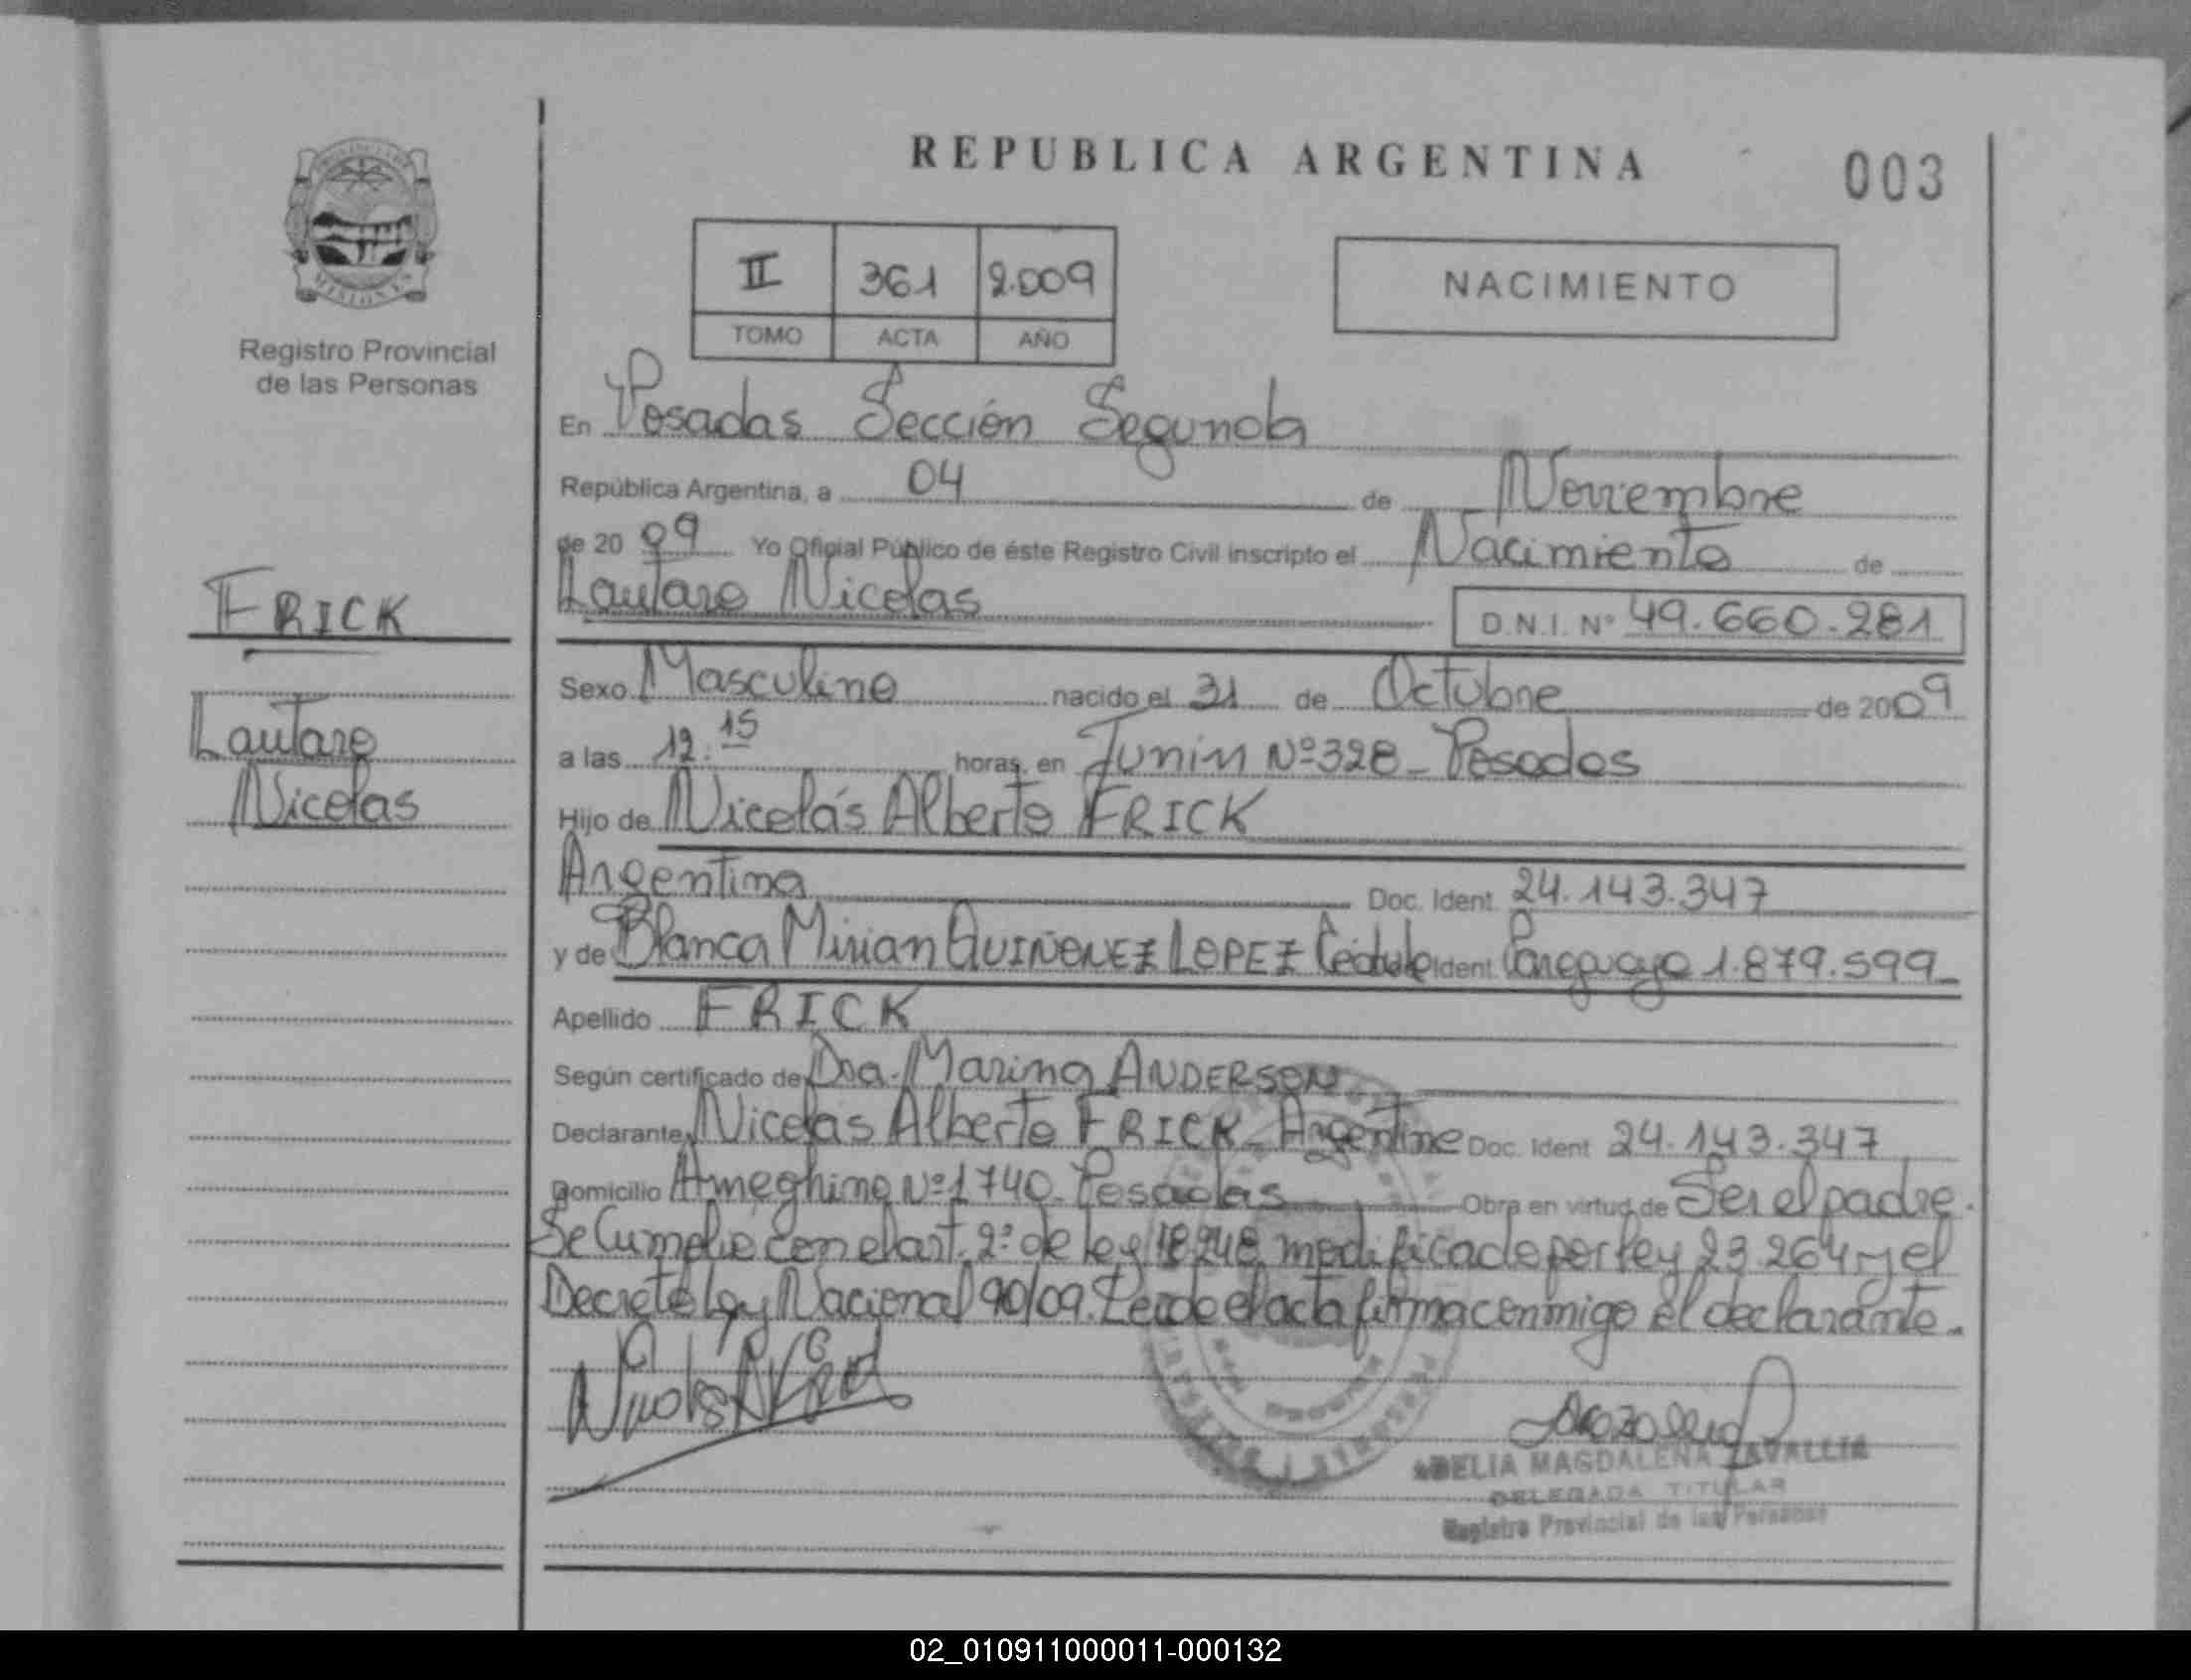 REPUBLICA ARGENTINA
003
II 361 2.009
TOMO ACTA AÑO
NACIMIENTO
MISIONES
Registro Provincial
de las Personas
FRICK
Lautaro
Nicolas
En Posadas Sección Segunda
República Argentina, a 04 de Noviembre
de 20 09 Yo Oficial Público de éste Registro Civil inscripto el Nacimiento de
Lautaro Nicolas D.N.I. Nº 49.660.281
Sexo Masculino nacido el 31 de Octubre de 2009
a las 12.15 horas, en Junin Nº 328 - Posadas
Hijo de Nicolás Alberto FRICK
Argentina Doc. Ident. 24.143.347
y de Blanca Mirian QUIÑONEZ LOPEZ Cédula Ident. Paraguaya 1.879.599-
Apellido FRICK
Según certificado de Dra. Marina ANDERSON
Declarante Nicolas Alberto FRICK - Argentino Doc. Ident 24.143.347
Domicilio Ameghino Nº 1740 - Posadas Obra en virtud de Ser el padre.
Se Cumple con el art. 2º de ley 18.248 modificado por ley 23.264 y el
Decreto Ley Nacional 90/09. Leido el acta firma conmigo el declarante.
MAGDALENA
DELEGADA TITULAR
Registro Provincial de las Personas
02_010911000011-000132